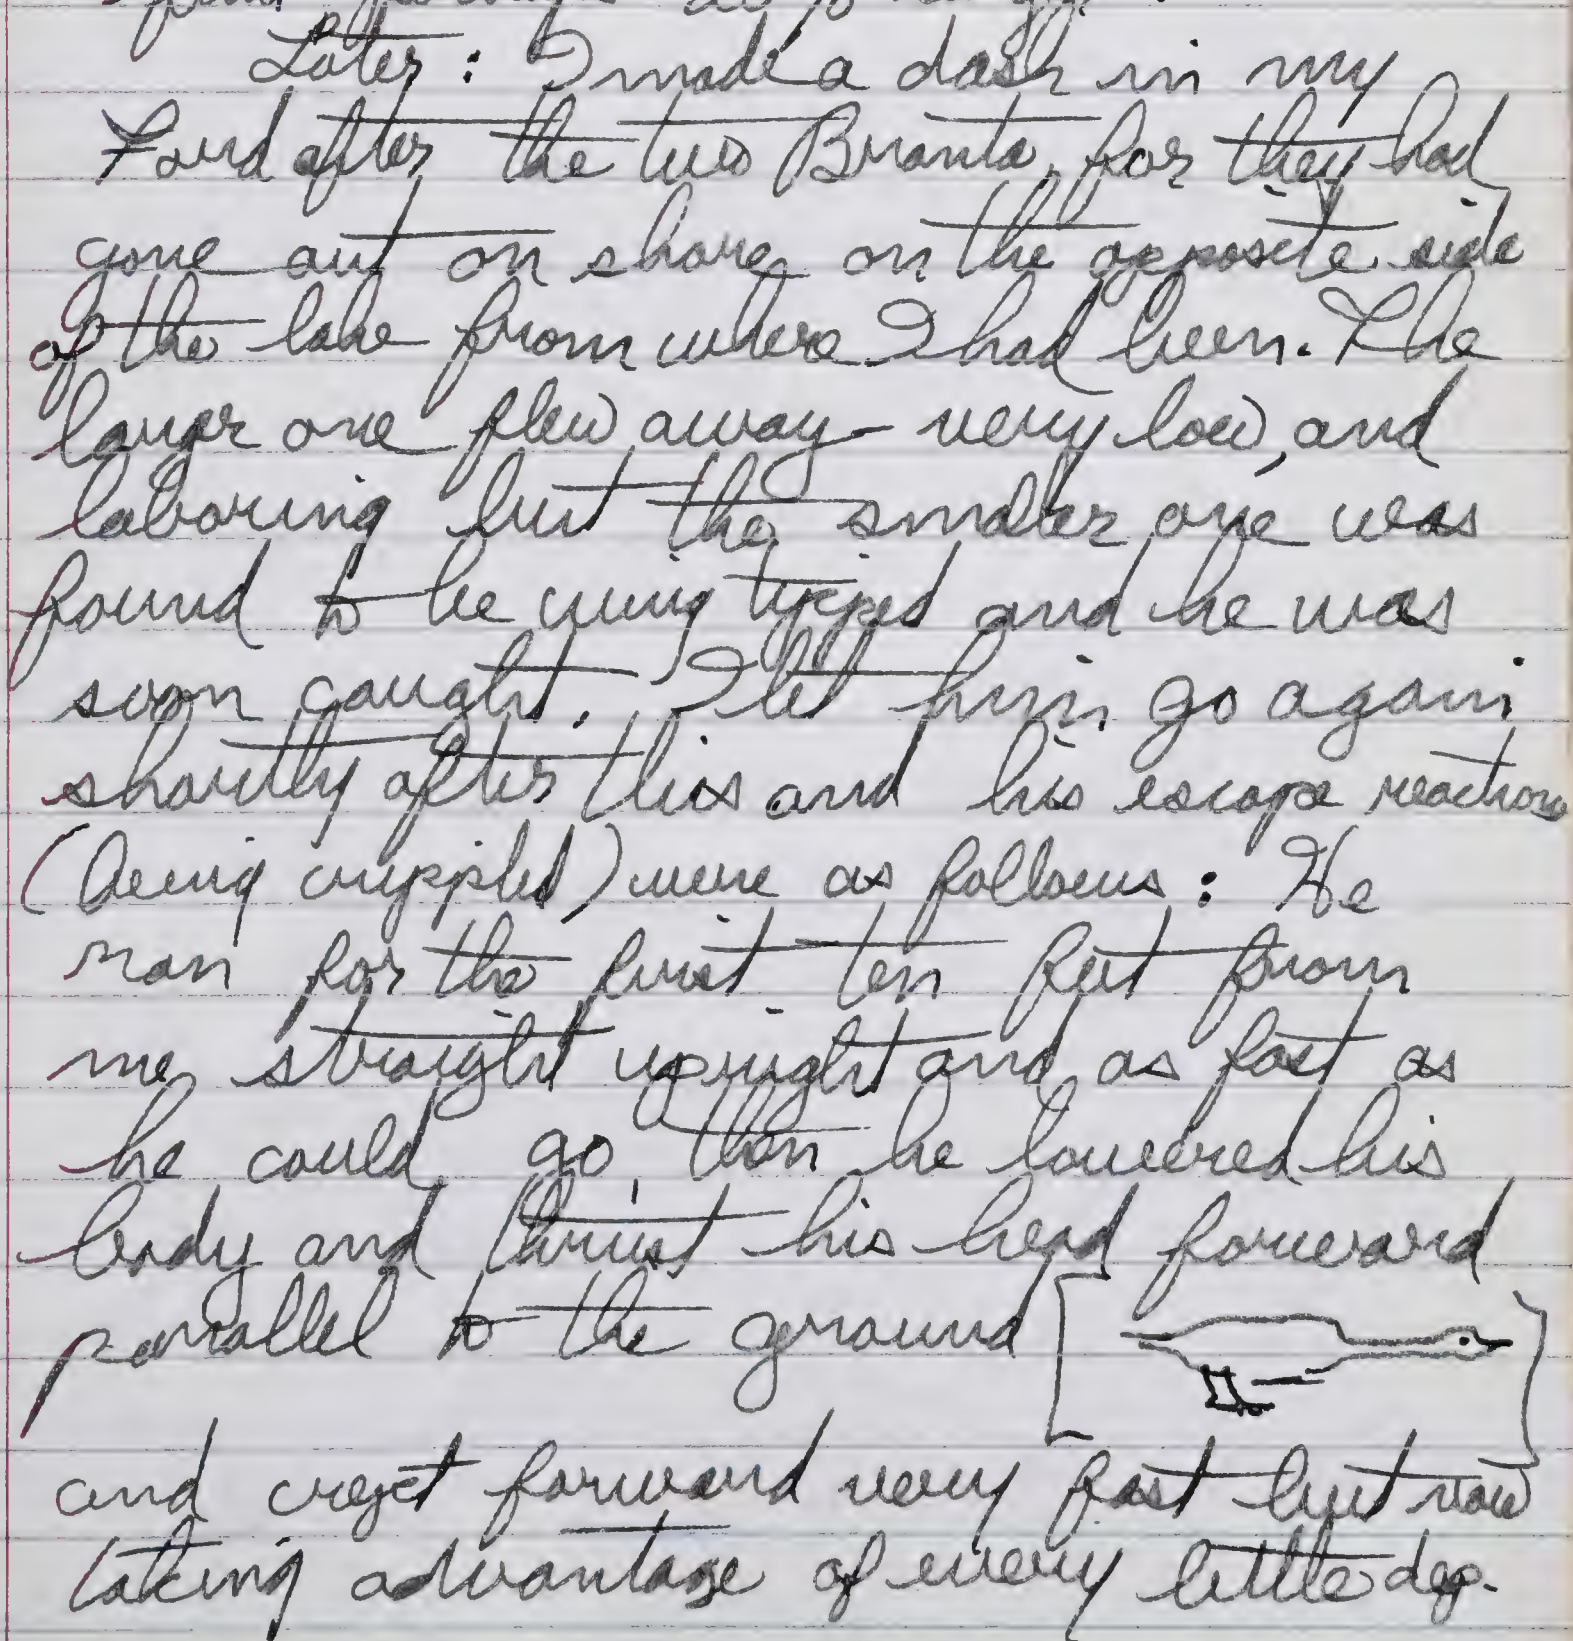 Later: I made a dash in my
Ford after the two Branta, for they had
gone out on shore on the opposite side
of the lake from where I had been. The
larger one flew away very low, and
laboring but the smaller one was
found to be wing tipped and he was
soon caught. I let him go again
shortly after this and his escape reactions
(being crippled) were as follows: He
ran for the first ten feet from
me straight upright and as fast as
he could go, then he lowered his
body and thrust his head forward
parallel to the ground [ ]
and crept forward very fast but now
taking advantage of every little dep-